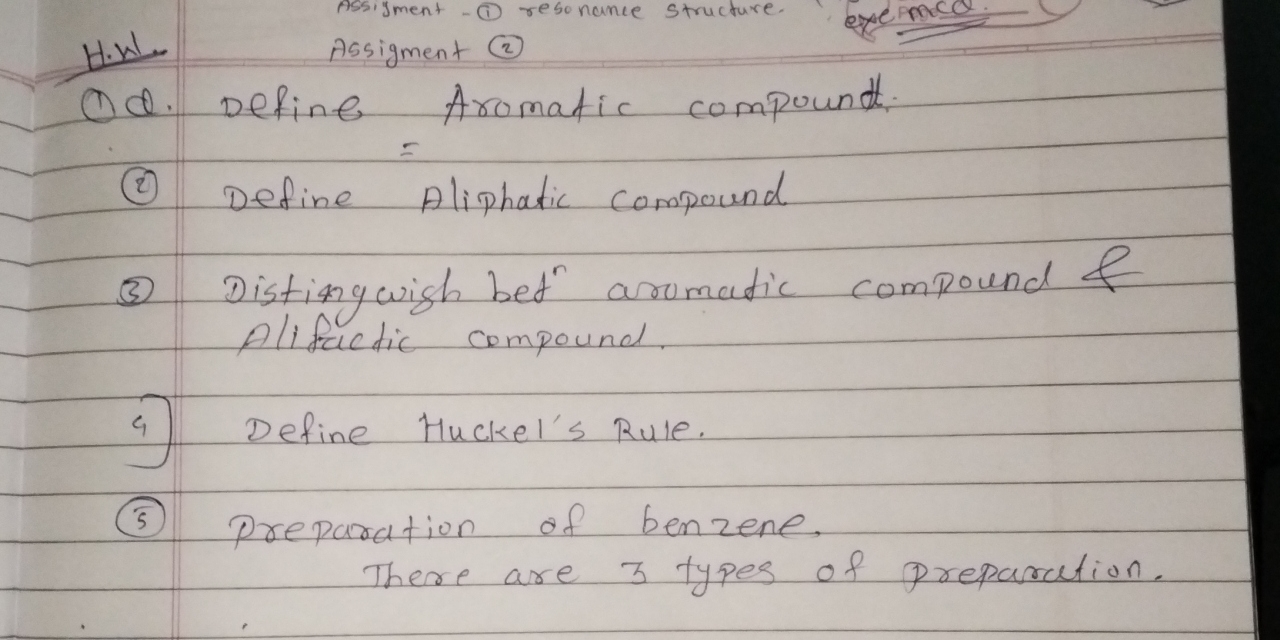 Assigment - ① resonance structure.
Assigment ②
H.W.
① Q. Define Aromatic compound.
② Define Aliphatic compound
③ Distingwish betⁿ aromatic compound &
Alifactic compound.
4] Define Huckel's Rule.
⑤ Preparation of benzene.
There are 3 types of preparation.